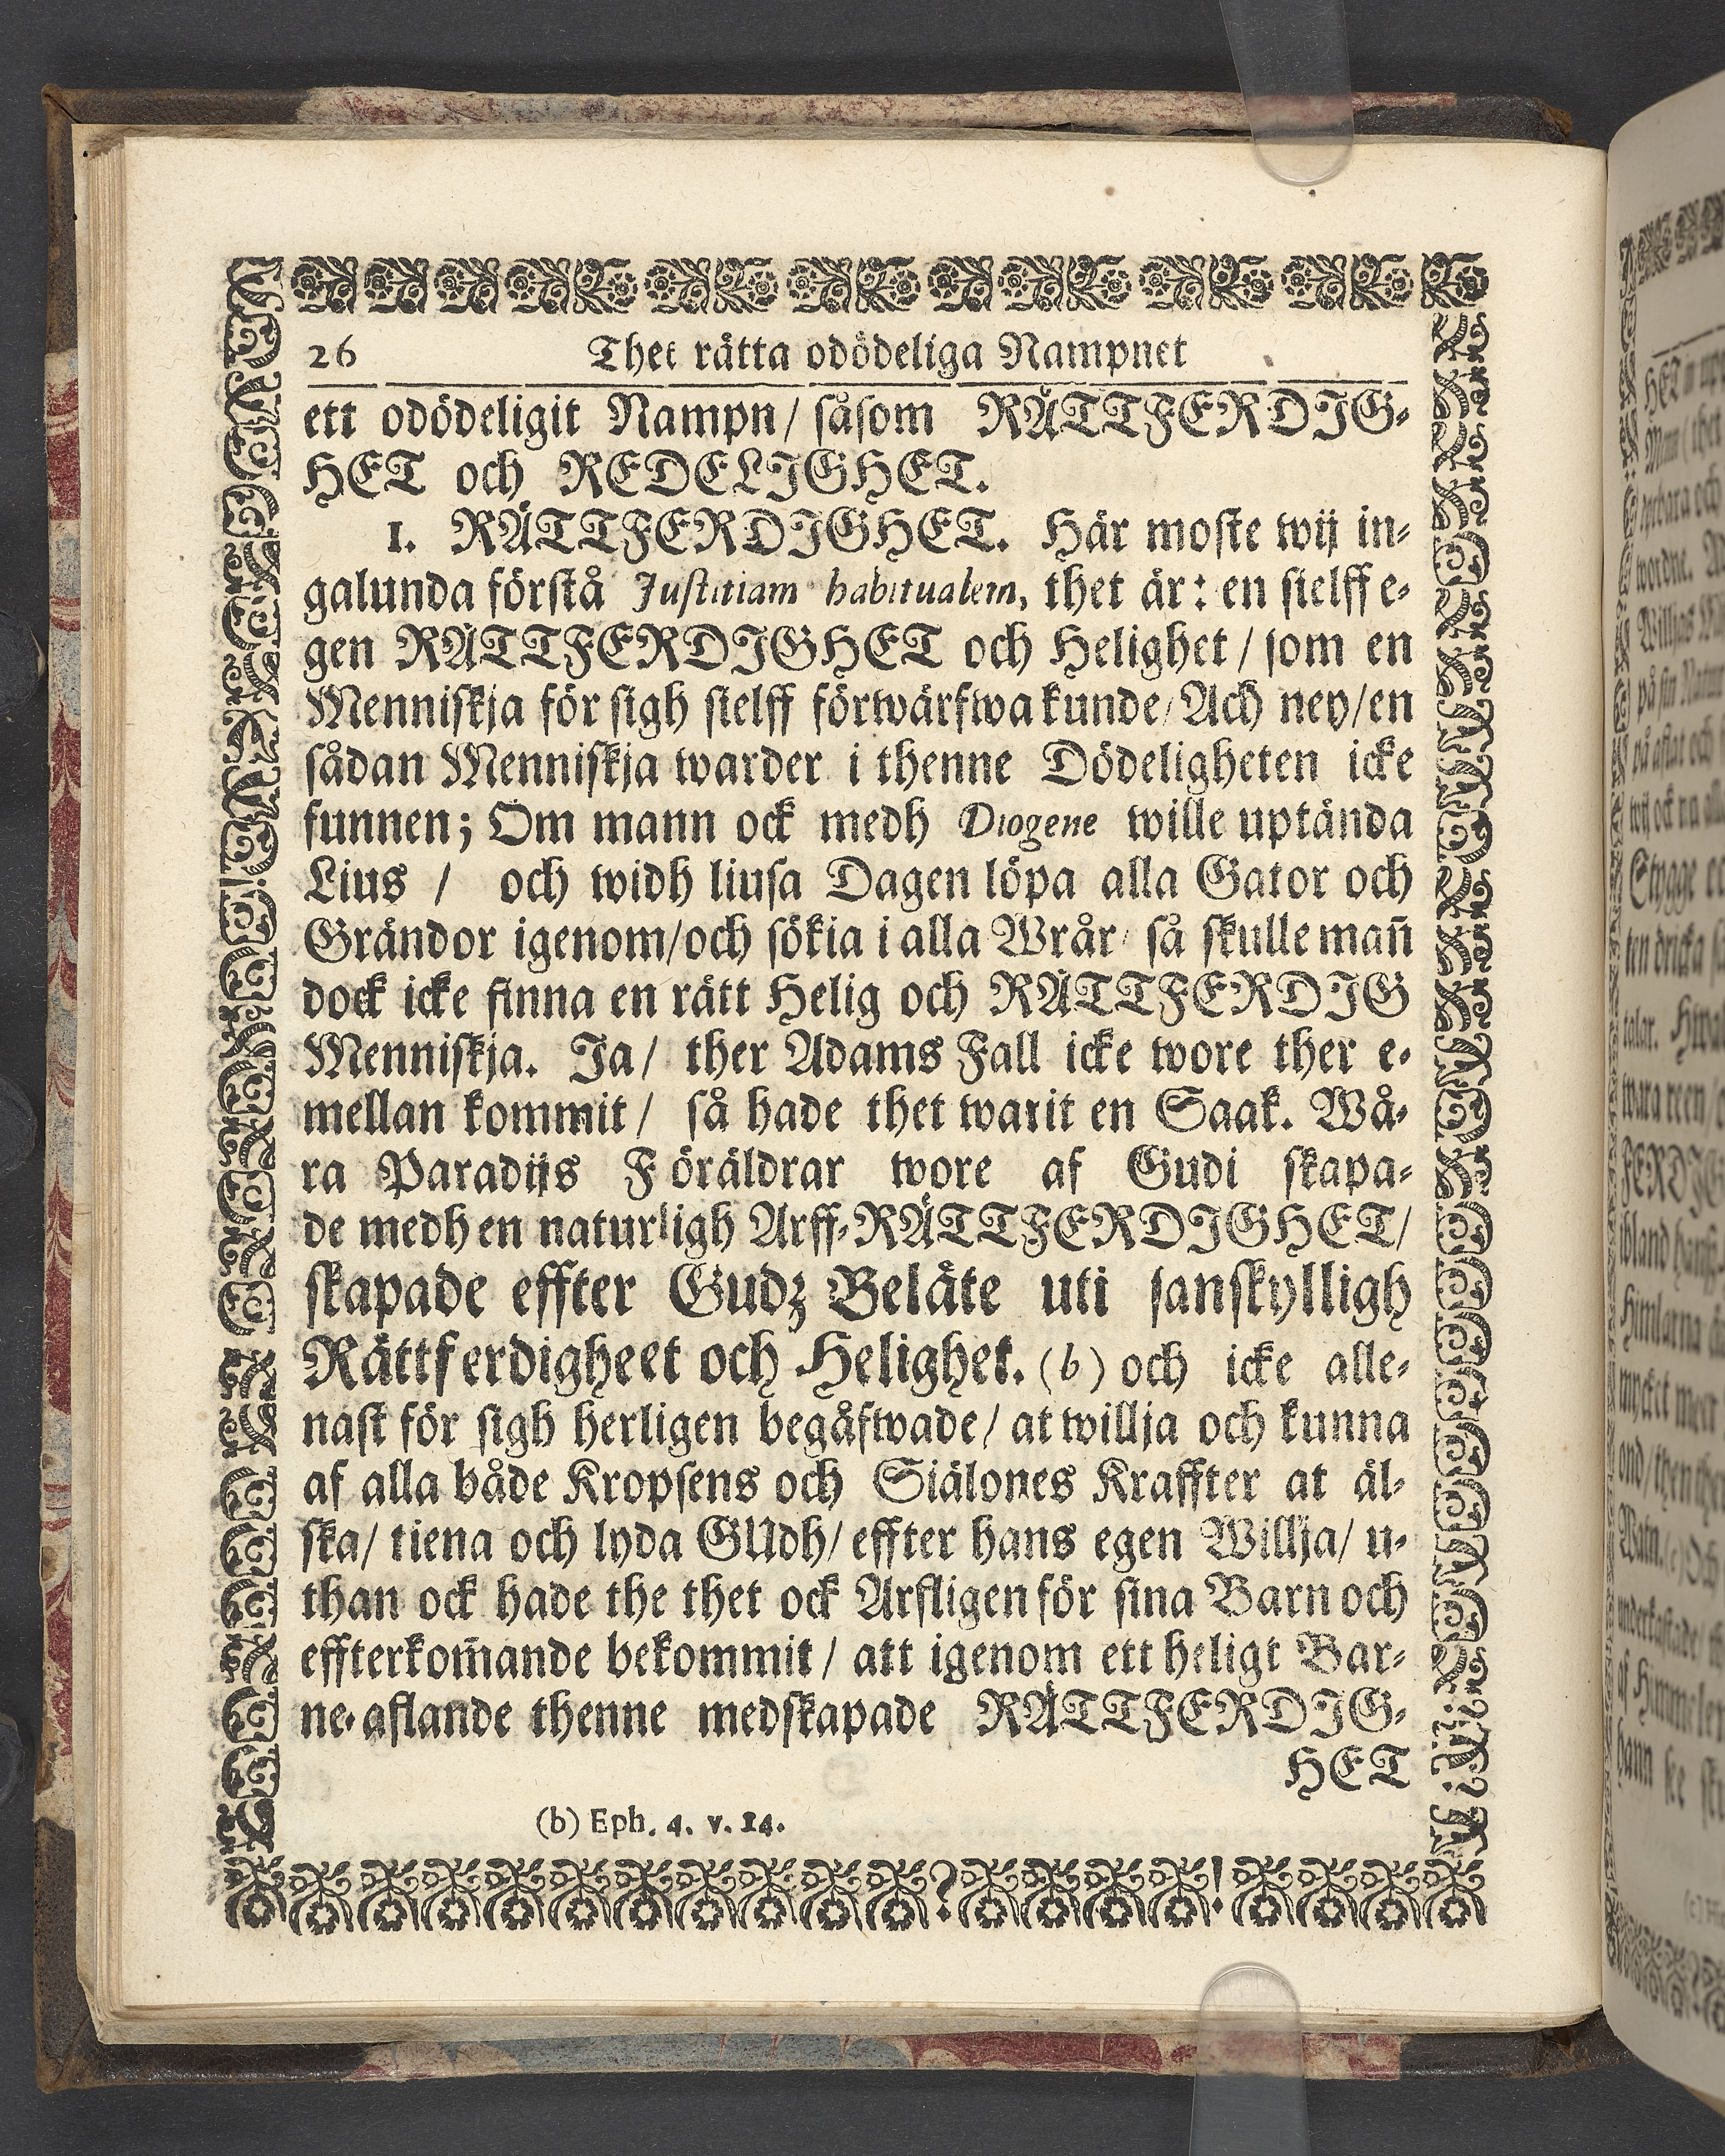 26 Thet rätta odödeliga Nampnet
ett odödeligit Nampn/ såsom RÄTTFERDIG-
HET och REDELIGHET.
1. RÄTTFERDIGHET. Här moste wij in-
galunda förstå Justitiam habitualem, thet är: en sielff e-
gen RÄTTFERDIGHET och Helighet/ som en
Menniskja för sigh sielff förwärfwa kunde/ Ach ney/ en
sådan Menniskja warder i thenne Dödeligheten icke
funnen; Om mann ock medh Diogene wille uptända
Lius / och widh liusa Dagen löpa alla Gator och
Grändor igenom/ och sökia i alla Wrår/ så skulle mañ
dock icke finna en rätt Helig och RÄTTFERDIG
Menniskja. Ja/ ther Adams Fall icke wore ther e-
mellan kommit/ så hade thet warit en Saak. Wå-
ra Paradijs Föräldrar wore af Gudi skapa-
de medh en naturligh Arff-RÄTTFERDIGHET/
skapade effter Gudz Beläte uti sanskylligh
Rättferdigheet och Helighet. (b) och icke alle-
nast för sigh herligen begåfwade/ at willja och kunna
af alla både Kropsens och Siälones Kraffter at äl-
ska/ tiena och lyda GUdh/ effter hans egen Willja/ u-
than ock hade the thet ock Arfligen för sina Barn och
effterkom̃ande bekommit/ att igenom ett heligt Bar-
ne-aflande thenne medskapade RÄTTFERDIG-
HET
(b) Eph. 4. v. 14.